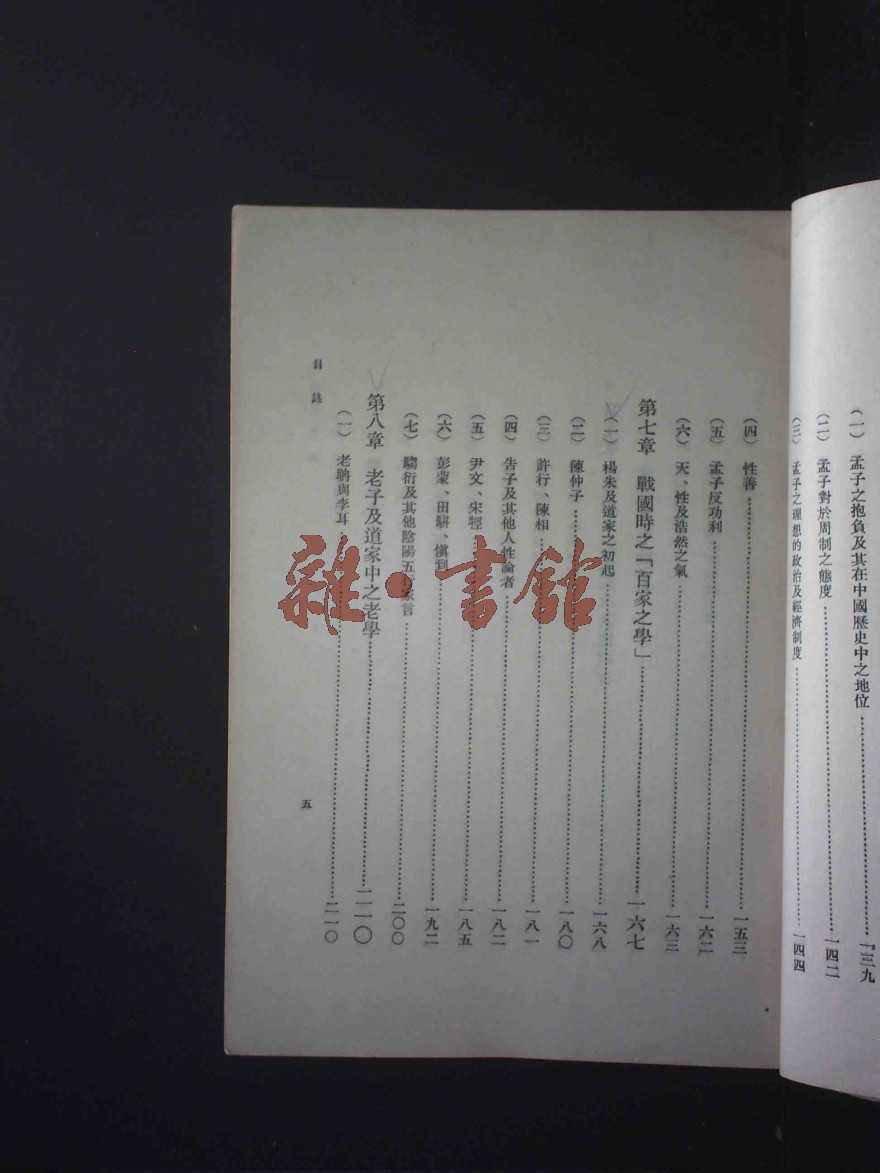 （一）　孟子之抱負及其在中國歷史中之地位……一三九
（二）　孟子對於周制之態度……一四二
（三）　孟子之理想的政治及經濟制度……一四四
（四）　性善……一五三
（五）　孟子反功利……一六二
（六）　天、性及浩然之氣……一六三
第七章　戰國時之「百家之學」……一六七
（一）　楊朱及道家之初起……一六八
（二）　陳仲子……一八〇
（三）　許行、陳相……一八一
（四）　告子及其他人性論者……一八二
（五）　尹文、宋牼……一八五
（六）　彭蒙、田駢、慎到……一九二
（七）　騶衍及其他陰陽五行家言……二〇〇
第八章　老子及道家中之老學……二一〇
（一）　老聃與李耳……二一〇
目錄
五
雜·書館